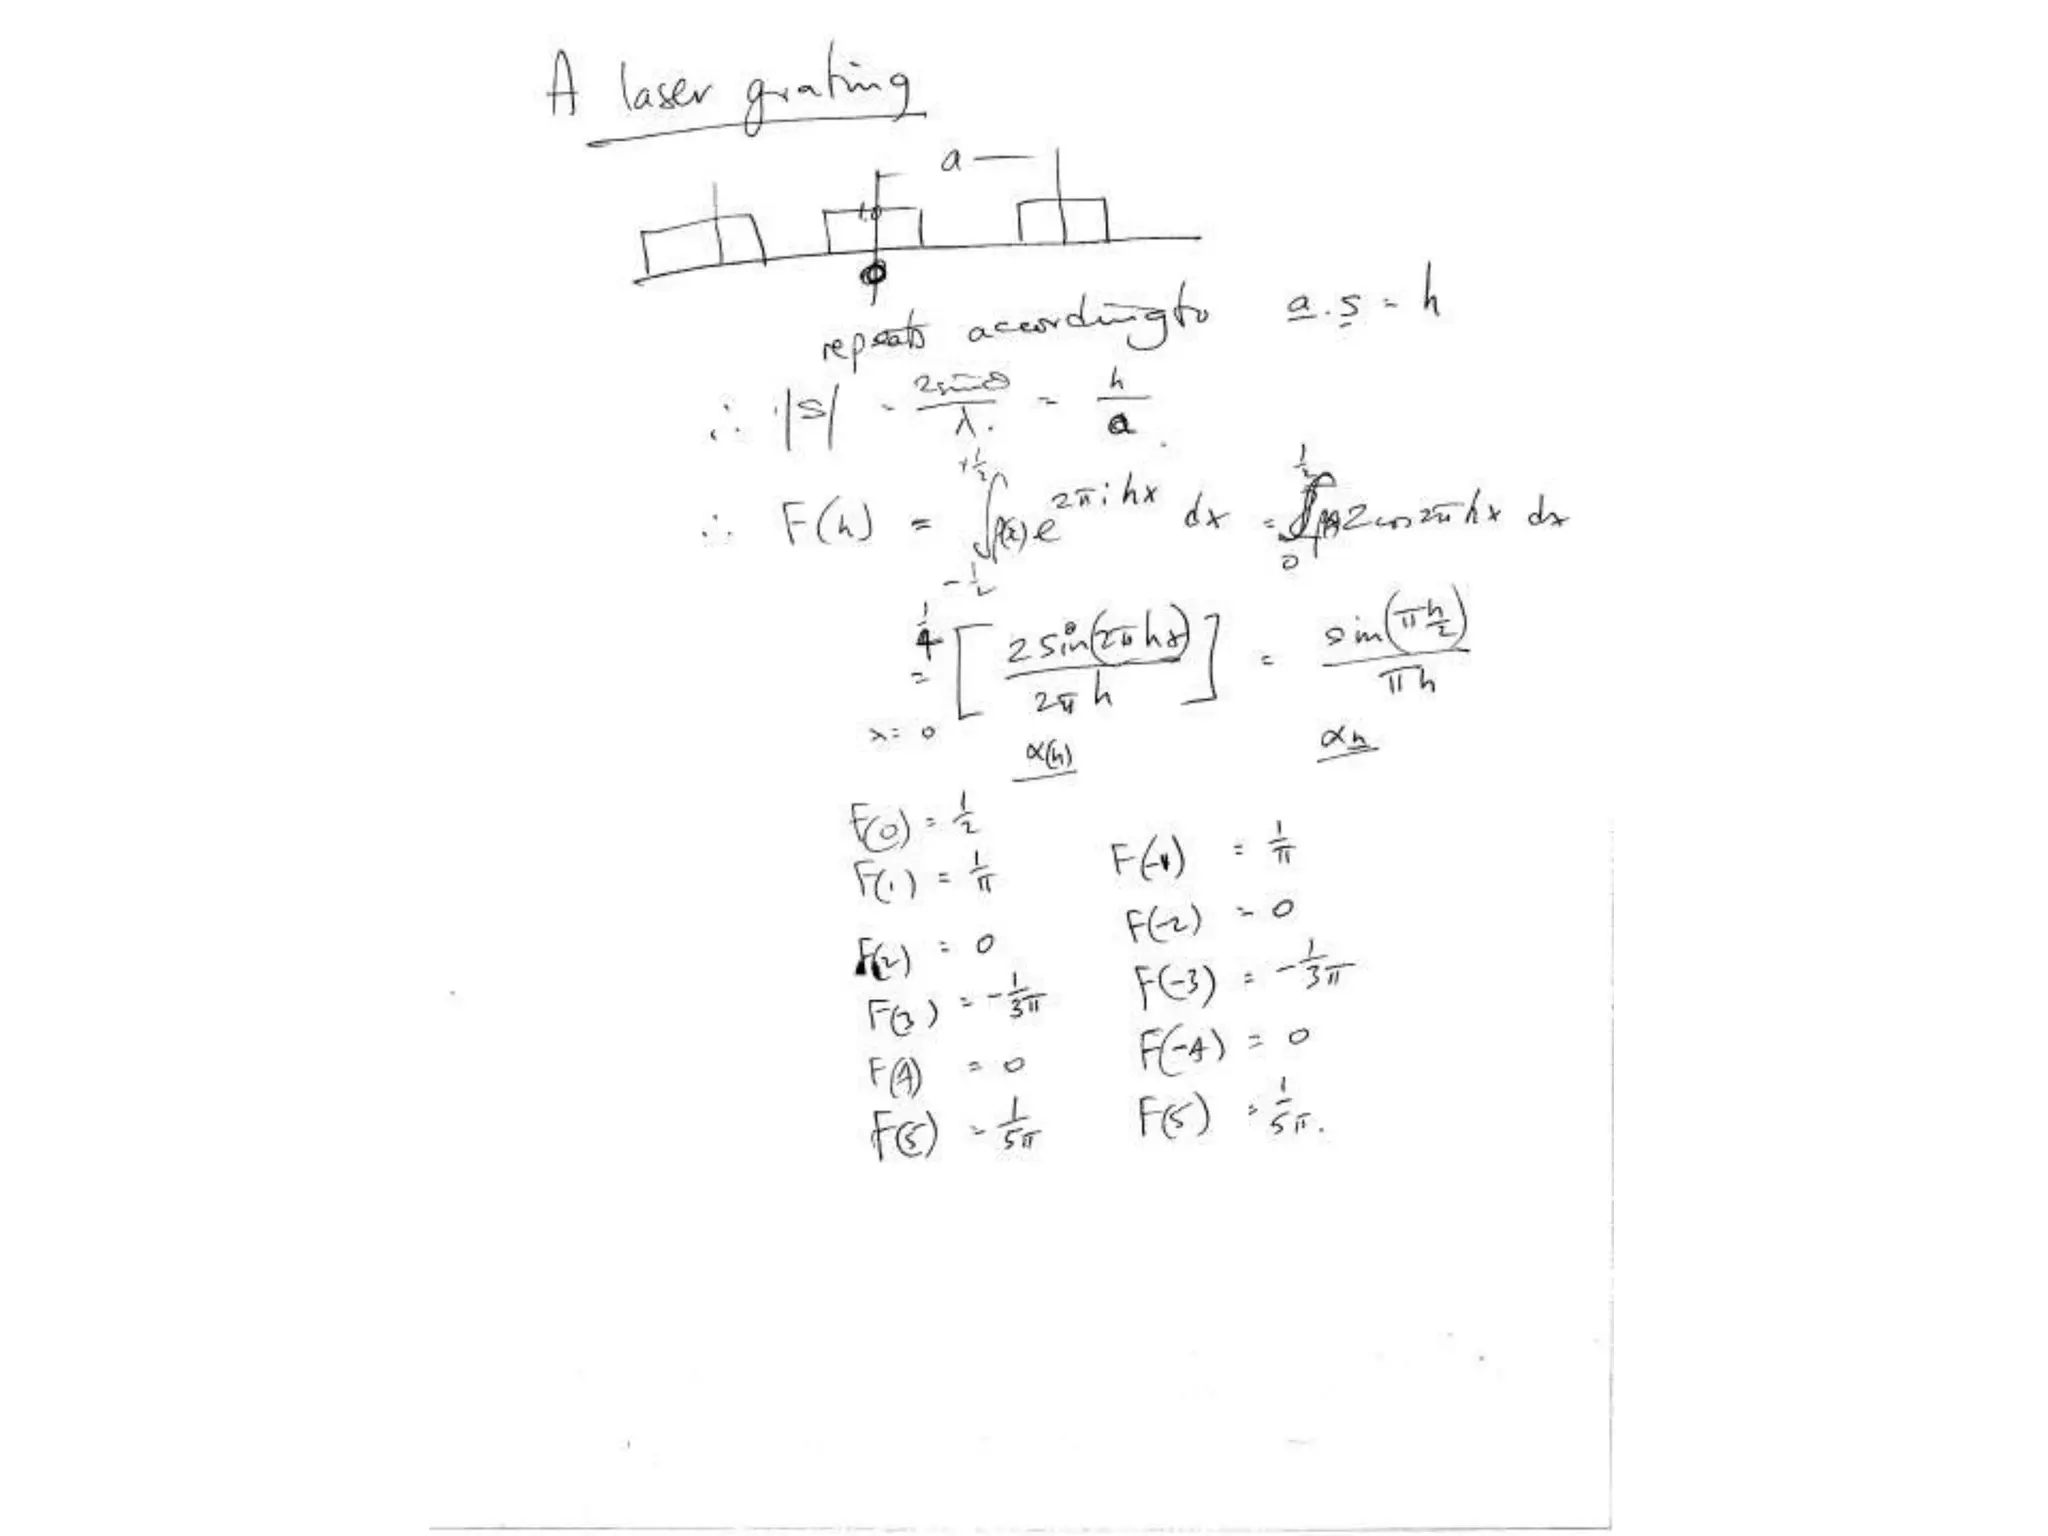 A laser grating
a
1.0
0
repeats according to a.s = h
∴ |S| = 2sinθ/λ. = h/a.
∴ F(h) = ∫_{-1/2}^{+1/2} ρ(x) e^{2πihx} dx = ∫_0^{1/2} ρ(x) 2cos2πhx dx
= [2sin(2πhx)/2πh]_{x=0}^{1/4} = sin(πh/2)/πh
α(h) αh
F(0) = 1/2
F(1) = 1/π F(-1) = 1/π
F(2) = 0 F(-2) = 0
F(3) = -1/3π F(-3) = -1/3π
F(4) = 0 F(-4) = 0
F(5) = 1/5π F(5) = 1/5π.